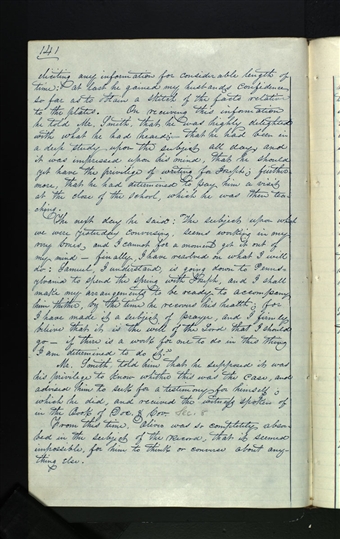 141
eliciting any information for considerable length of
time; at last he gained my husband's confidence,
so far as to obtain a sketch of the facts relative
to the plates. On receiving this information
he told Mr. Smith, that he was highly delighted
with what he had heard; that he had been in
a deep study upon the subject all day, and
it was impressed upon his mind, that he should
yet have the privilege of writing for Joseph; further-
more, that he had determined to pay him a visit
at the close of the school, which he was then tea-
ching.
The next day he said: The subject upon which
we were yesterday conversing, seems working in my
very bones, and I cannot for a moment get it out of
my mind — finally, I have resolved on what I will
do: Samuel, I understand, is going down to Penns-
ylvania to spend the spring with Joseph, and I shall
make my arrangements to be ready to accompany
him thither, by the time he recovers his health; for
I have made it a subject of prayer, and I firmly
believe that it is the will of the Lord that I should
go — if there is a work for me to do in this thing
I am determined to do it.
Mr. Smith, told him that he supposed it was
his privilege to know whether this was the case, and
advised him to seek for a testimony for himself;
which he did, and received the witness spoken of
in the Book of Doc. & Cov. Sec. 8
From this time, Oliver was so completely absor-
bed in the subject of the record, that it seemed
impossible, for him to think or converse about any-
thing else.